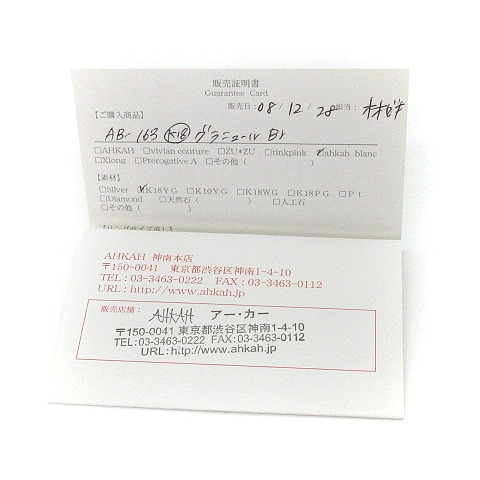 販売証明書
Guarantee Card
販売日：08 / 12 / 28 担当：
【ご購入商品】
AB-163 K18 グラニュール Br
□AHKAH □vivian couture □ZU*ZU □tinkpink ☑ahkah blanc
□Xlong □Prerogative A □その他（ ）
【素材】
□Silver ☑K18YG □K10YG □K18WG □K18PG □Pt
□Diamond □天然石（ ） □人工石
□その他（ ）
【リングサイズ直し】
AHKAH 神南本店
〒150-0041 東京都渋谷区神南1-4-10
TEL：03-3463-0222 FAX：03-3463-0112
URL：http://www.ahkah.jp
販売店舗：
AHKAH アー・カー
〒150-0041 東京都渋谷区神南1-4-10
TEL:03-3463-0222 FAX:03-3463-0112
URL:http://www.ahkah.jp